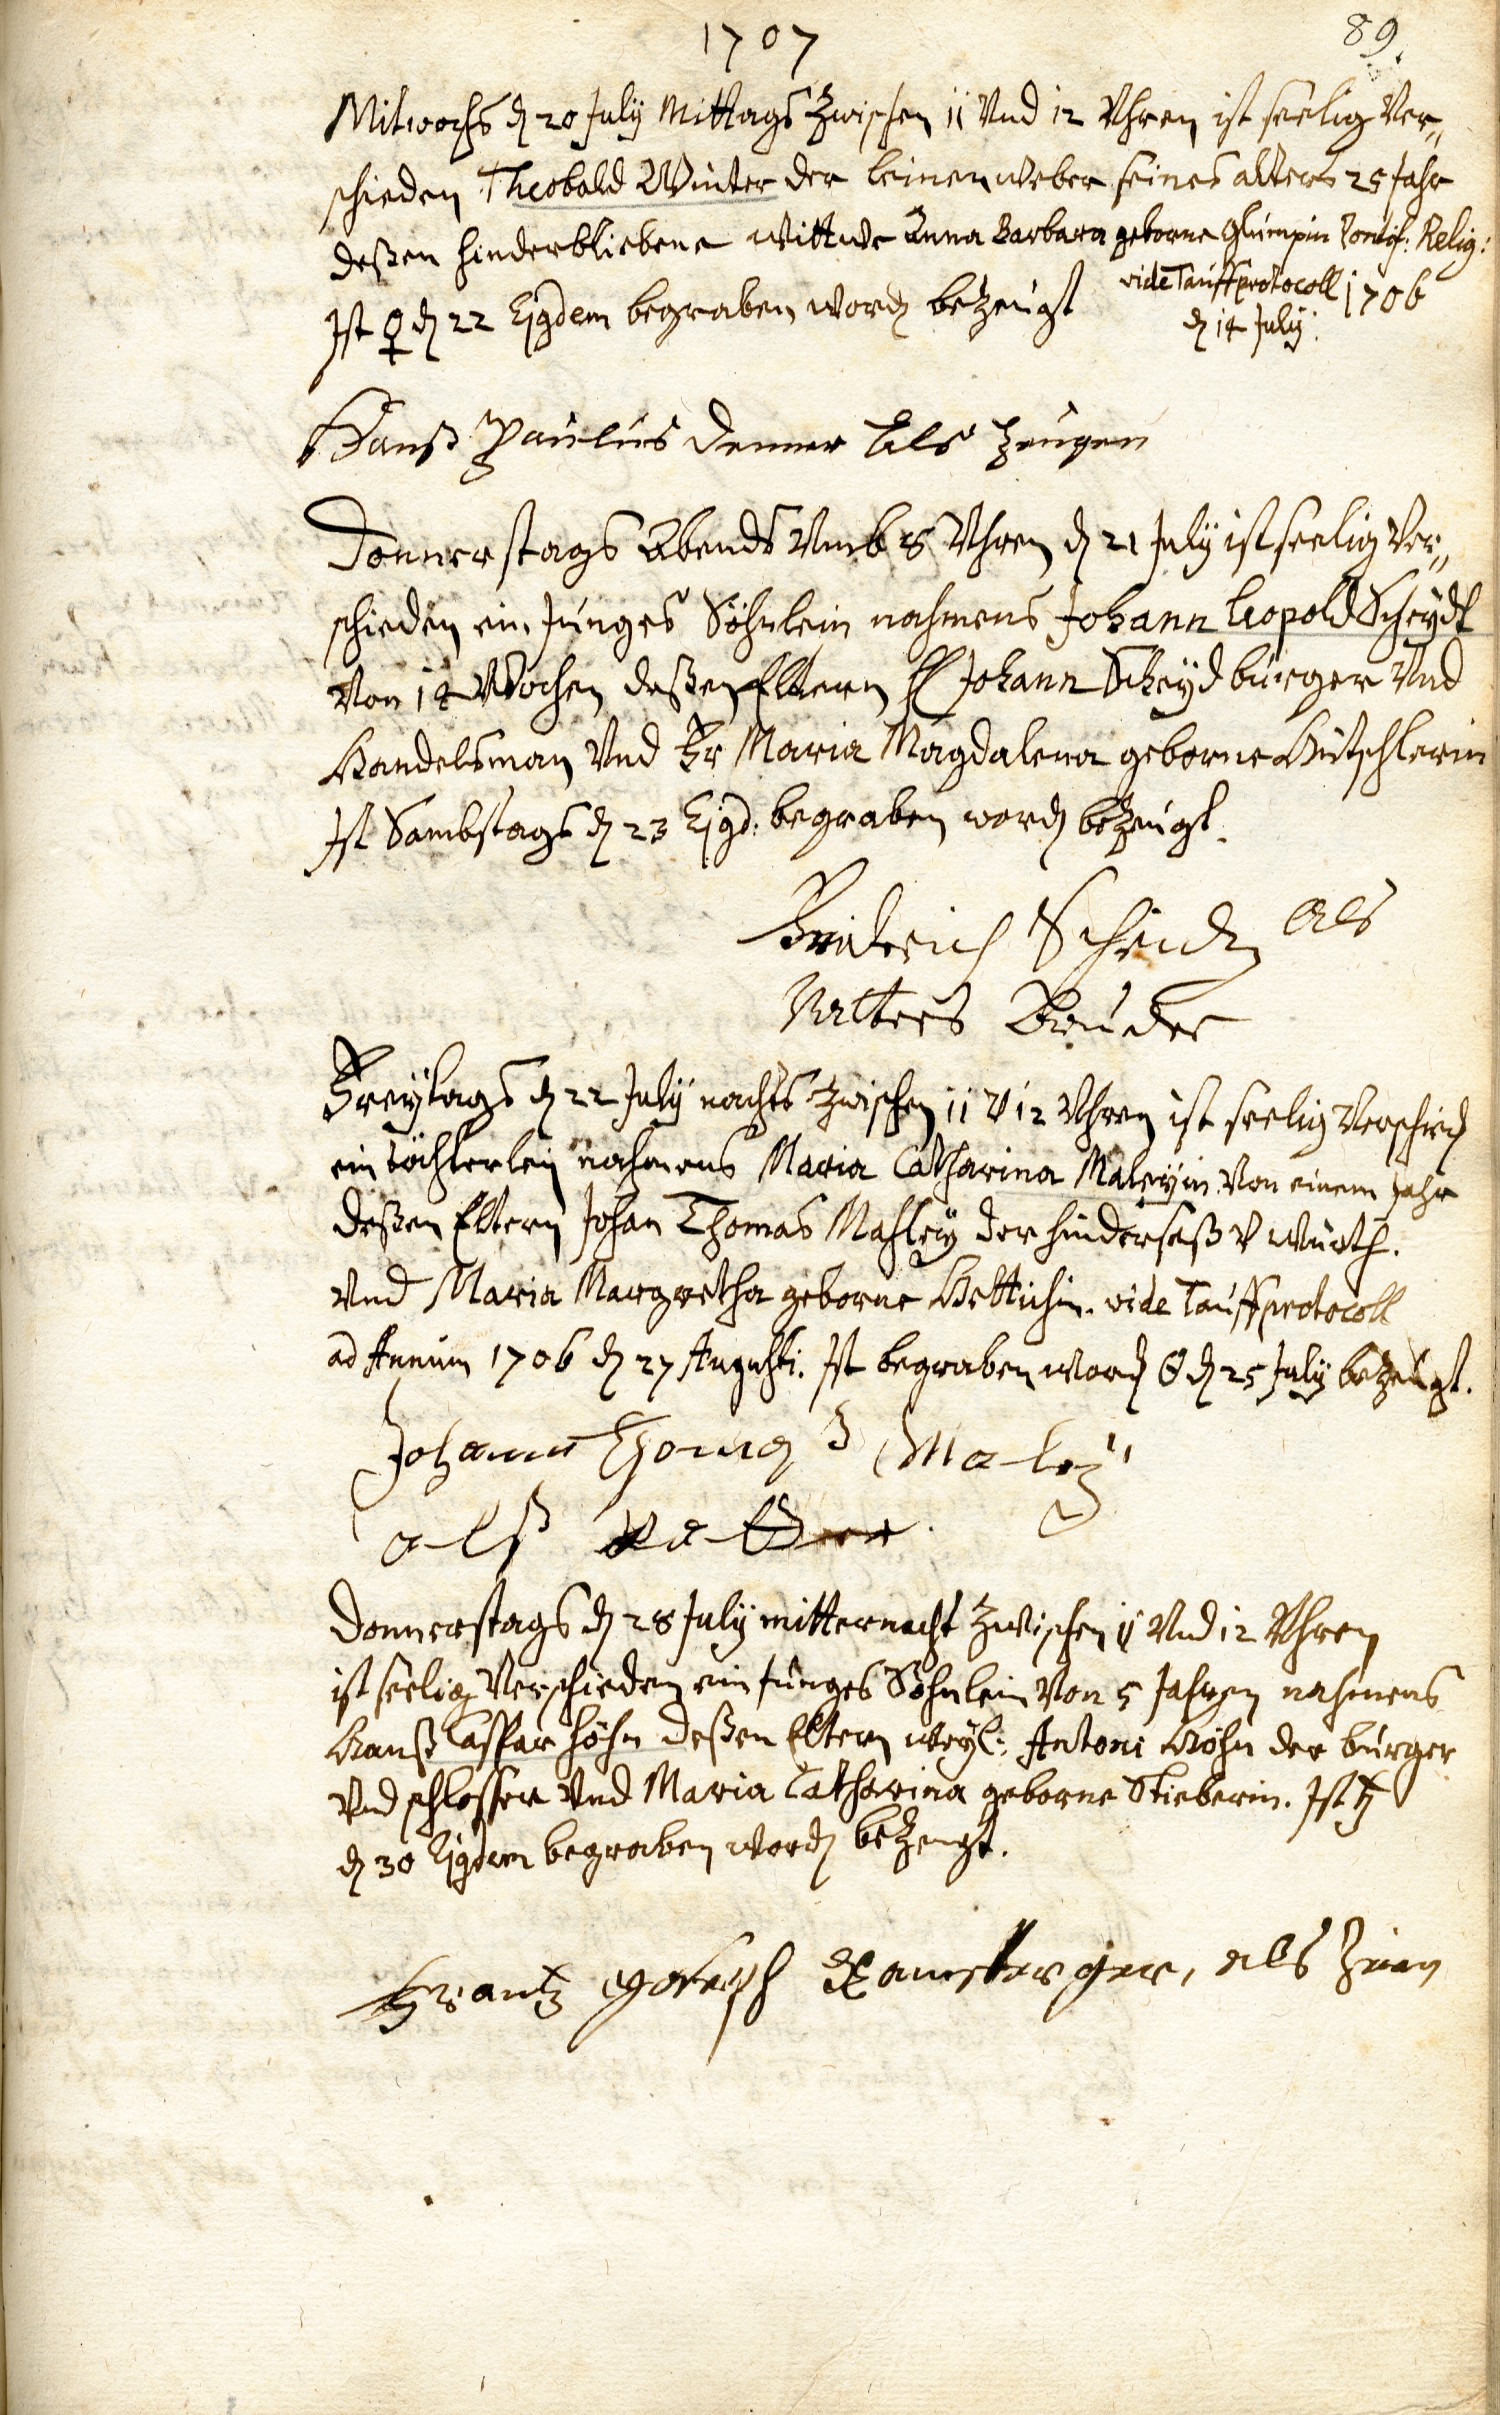 1707
89.
Mitwochs d 20 July Mittags zwischen 11 Vnd 12 Vhren ist seelig Ver„
schieden Theobald Winter der leinenweber seines alters 25 Jahr
deßen hinderbliebene wittwe Anna Barbara geborne Glümpin Pontif: Relig:
vide Tauffprotocoll 1706
d 14 July.
Ist ♀ d 22 Ejgdem begraben word bezeugt
Hanß Paulus Denner Als zeugen
Donnerstags Abends Vmb 8 Vhren d 21 July ist seelig Ver„
schieden ein Junges Söhnlein nahmens Johann Leopold Scheydt
Von 14 Wochen deßen Eltern H Johann Scheyd burger Vnd
Handelsman Vnd Fr Maria Magdalena geborne Hütschlerin
Ist Sambstags d 23 Ejgd: begraben word bezeugt.
Friderich Scheidt als
Vatters Bruder
Freytags d 22 July nachts zwischen 11 V 12 Vhren ist seelig Verschied
ein töchterlein nahmens Maria Catharina Maleyin Von einem Jahr
deßen Eltern Johan Thomas Mahley der hindersaß V würth.
Vnd Maria Margretha geborne Hettichin. vide Tauffprotocoll
ad Annum 1706 d 27 Augusti. Ist begraben word d 25 July bezeugt.
Johann Thomas Maley
alß Vatter.
Donnerstags d 28 July mitternacht zwischen 11 Vnd 12 Vhren
ist seelig Verschieden ein Junges Söhnlein Von 5 Jahren nahmens
Hanß Caspar Höhn deßen Eltern weyl: Antoni Höhn der burger
Vnd schlosser Vnd Maria Catharina geborne Stieberin. Ist ♄
d 30 Ejgdem begraben word bezeugt.
Frantz Joseph Ramsberger, als